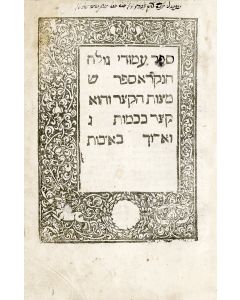 ספר עמודי גולה
הנקרא ספר ש
מצות הקצר והוא
קצר בכמות נ
וארוך באיכות